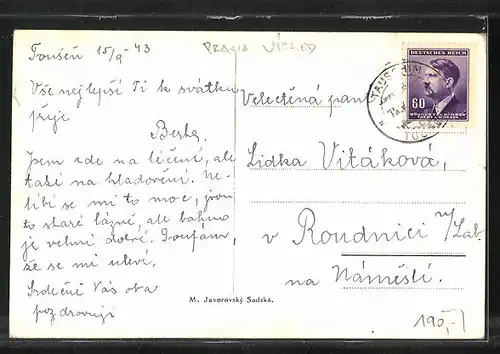 Toušeň 15/9-43
Vše nejlepší Ti k svátku
přeje
Berta.
Jsem zde na léčení, ale
také na hladovění. Ne-
líbí se mi to moc, jsou
to staré lázně, ale bahno
je velmi dobré. Doufám,
že se mi uleví.
Srdečně Vás oba
pozdravuji
Velectěná paní
Lidka Vitáková,
v Roudnici n/Lab.
na Náměstí.
DEUTSCHES REICH
60
M. Javorovský Sadská.
190,-